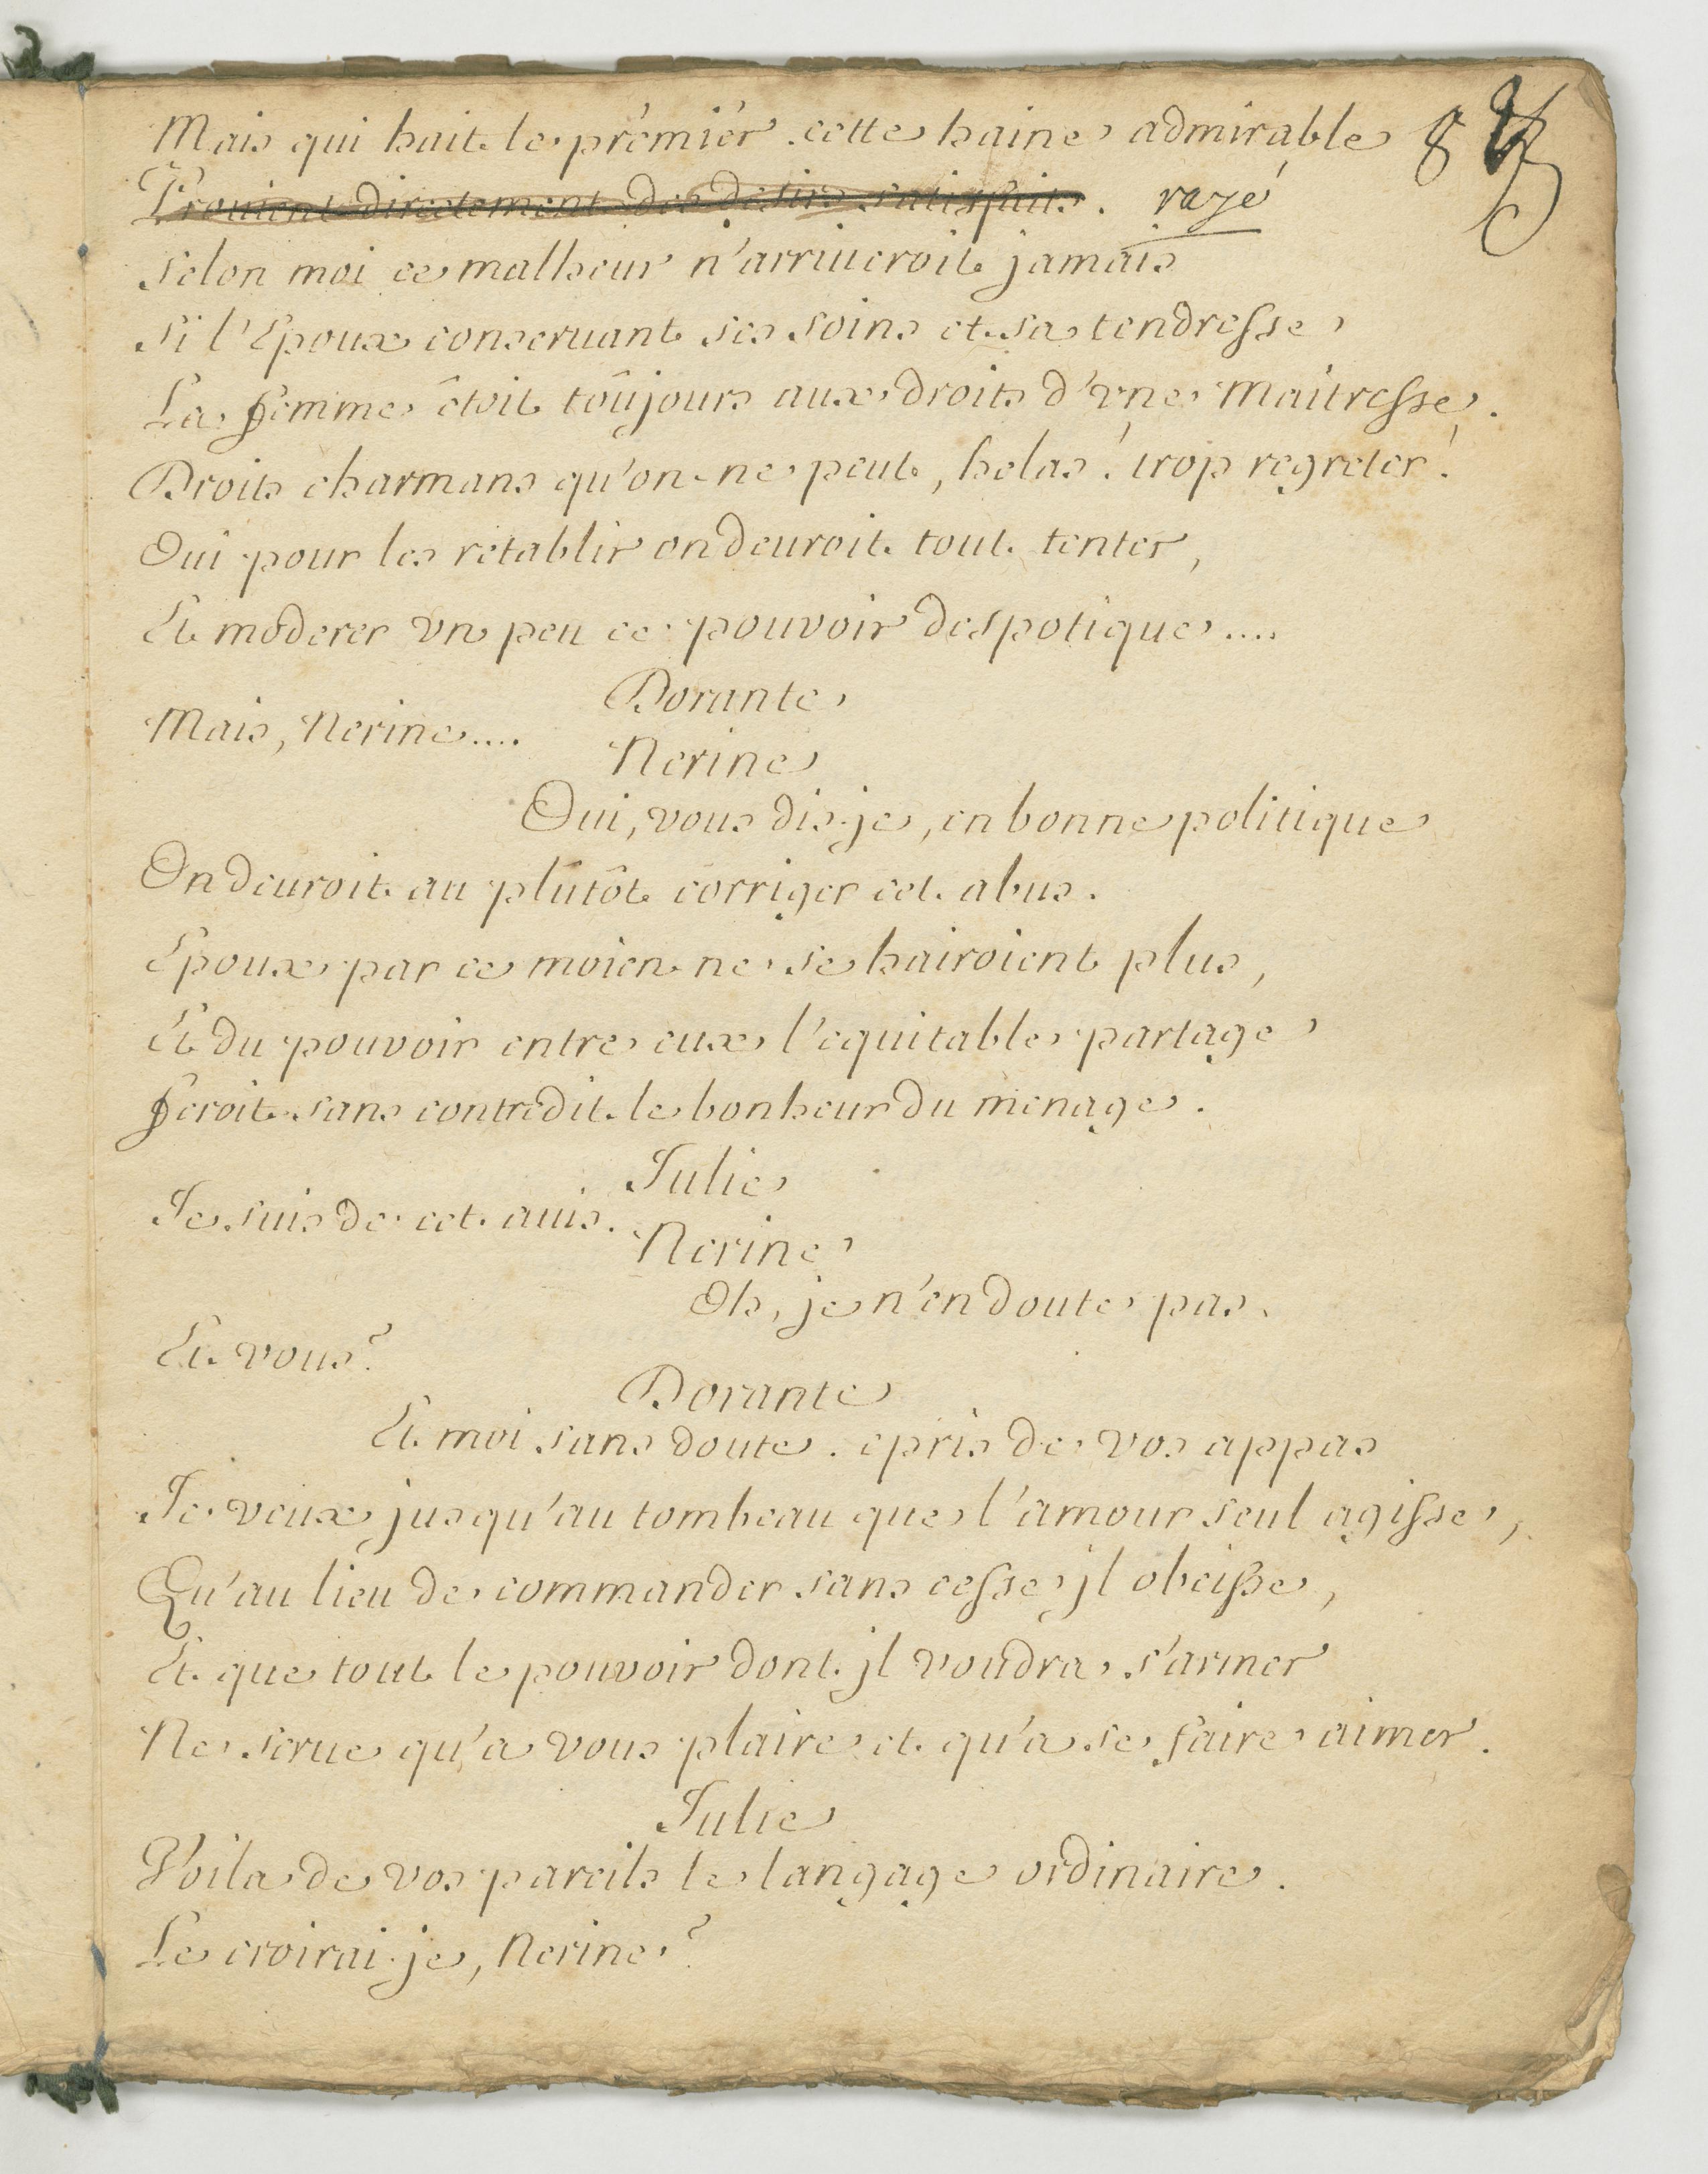 Mais qui hait le prémiér cette haine admirable 8
Prouient directement des desirs satisfaits. rayé
Selon moi ce malheur n'arriueroit jamais
Si l'Epoux conseruant ses soins et sa tendresse
La femme êtoit toûjours aux droits d'vne maitresse.
Droits charmans qu'on ne peut, helas! trop regreter!
Oui pour les rétablir on deuroit tout tenter,
Et moderer vn peu ce pouvoir despotique....
Dorante
Mais, Nerine....
Nerine
Oui, vous dis-je, en bonne politique
On deuroit au plutôt corriger cet abus.
Epoux par ce moien ne se hairoient plus,
Et du pouvoir entre eux l'equitable partage
feroit sans contredit le bonheur du menage.
Julie
Je suis de cet auis.
Nerine
Oh, je n'en doute pas.
Et vous?
Dorante
Et moi sans doute. epris de vos appas
Je veux jusqu'au tombeau que l'amour seul agisse,
Qu'au lieu de commander sans cesse jl obeisse,
Et que tout le pouvoir dont jl voudra s'armer
Ne serue qu'a vous plaire et qu'a se faire aimer.
Julie
Voila de vos pareils le langage ordinaire.
Le croirai-je, Nerine?